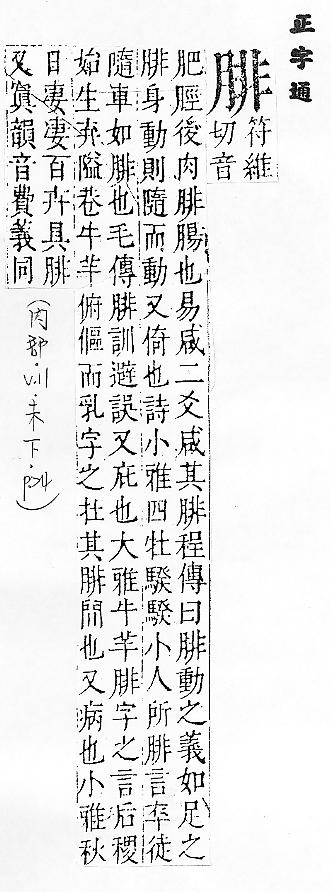 正字通
腓
符維
切音
肥脛後肉腓腸也易咸二爻咸其腓程傳曰腓動之義如足之
腓身動則隨而動又倚也詩小雅四牡騤騤小人所腓言卒徒
隨車如腓也毛傳腓訓避誤又庇也大雅牛羊腓字之言后稷
始生弃隘巷牛羊俯傴而乳字之在其腓閒也又病也小雅秋
日凄凄百卉具腓
又寘韻音費義同
(肉部.VIII.未下.P24)